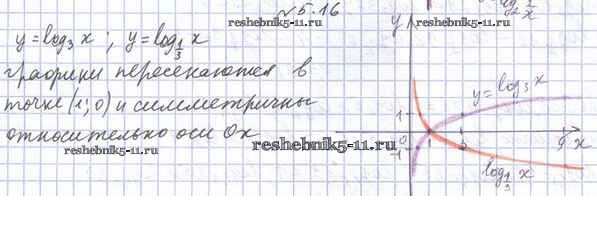 №5.16
y = log₃ x ; y = log_{1/3} x
графики пересекаются в
точке (1; 0) и симметричны
относительно оси Ox
reshebnik5-11.ru
reshebnik5-11.ru
reshebnik5-11.ru
y
y = log₃ x
1
0
-1
1
3
9
x
log_{1/3} x
x